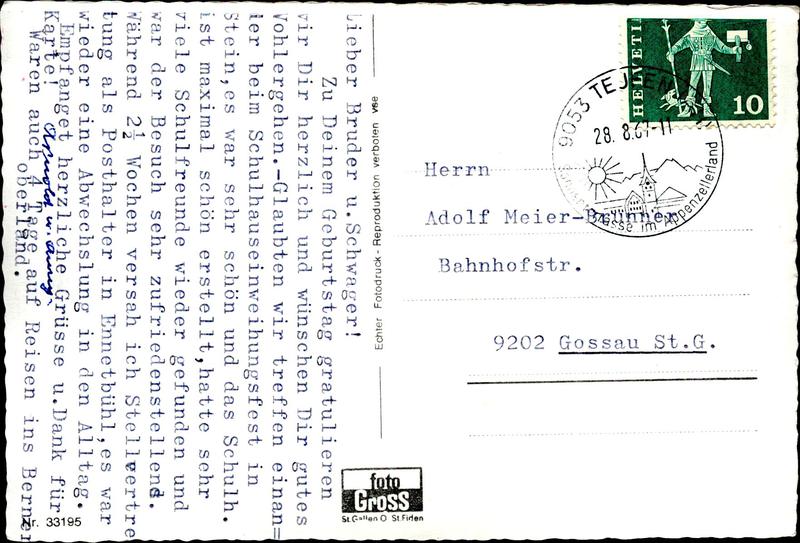 Lieber Bruder u.Schwager!
Zu Deinem Geburtstag gratulieren
wir Dir herzlich und wünschen Dir gutes
Wohlergehen.-Glaubten wir treffen einan=
der beim Schulhauseinweihungsfest in
Stein,es war sehr schön und das Schulh.
ist maximal schön erstellt,hatte sehr
viele Schulfreunde wieder gefunden und
war der Besuch sehr zufriedenstellend.
Während 2½ Wochen versah ich Stellvertre
tung als Posthalter in Ennetbühl,es war
wieder eine Abwechslung in den Alltag.
Empfanget herzliche Grüsse u.Dank für
Karte!
Waren auch 4 Tage auf Reisen ins Berner
oberland.
Echter Fotodruck - Reproduktion verboten vse
Nr. 33195
foto
Gross
St.Gallen O St.Fiden
HELVETIA
10
9053 TEUFEN
28. 8.67-11
Sonnenterrasse im Appenzellerland
Herrn
Adolf Meier-Brunner
Bahnhofstr.
9202 Gossau St.G.